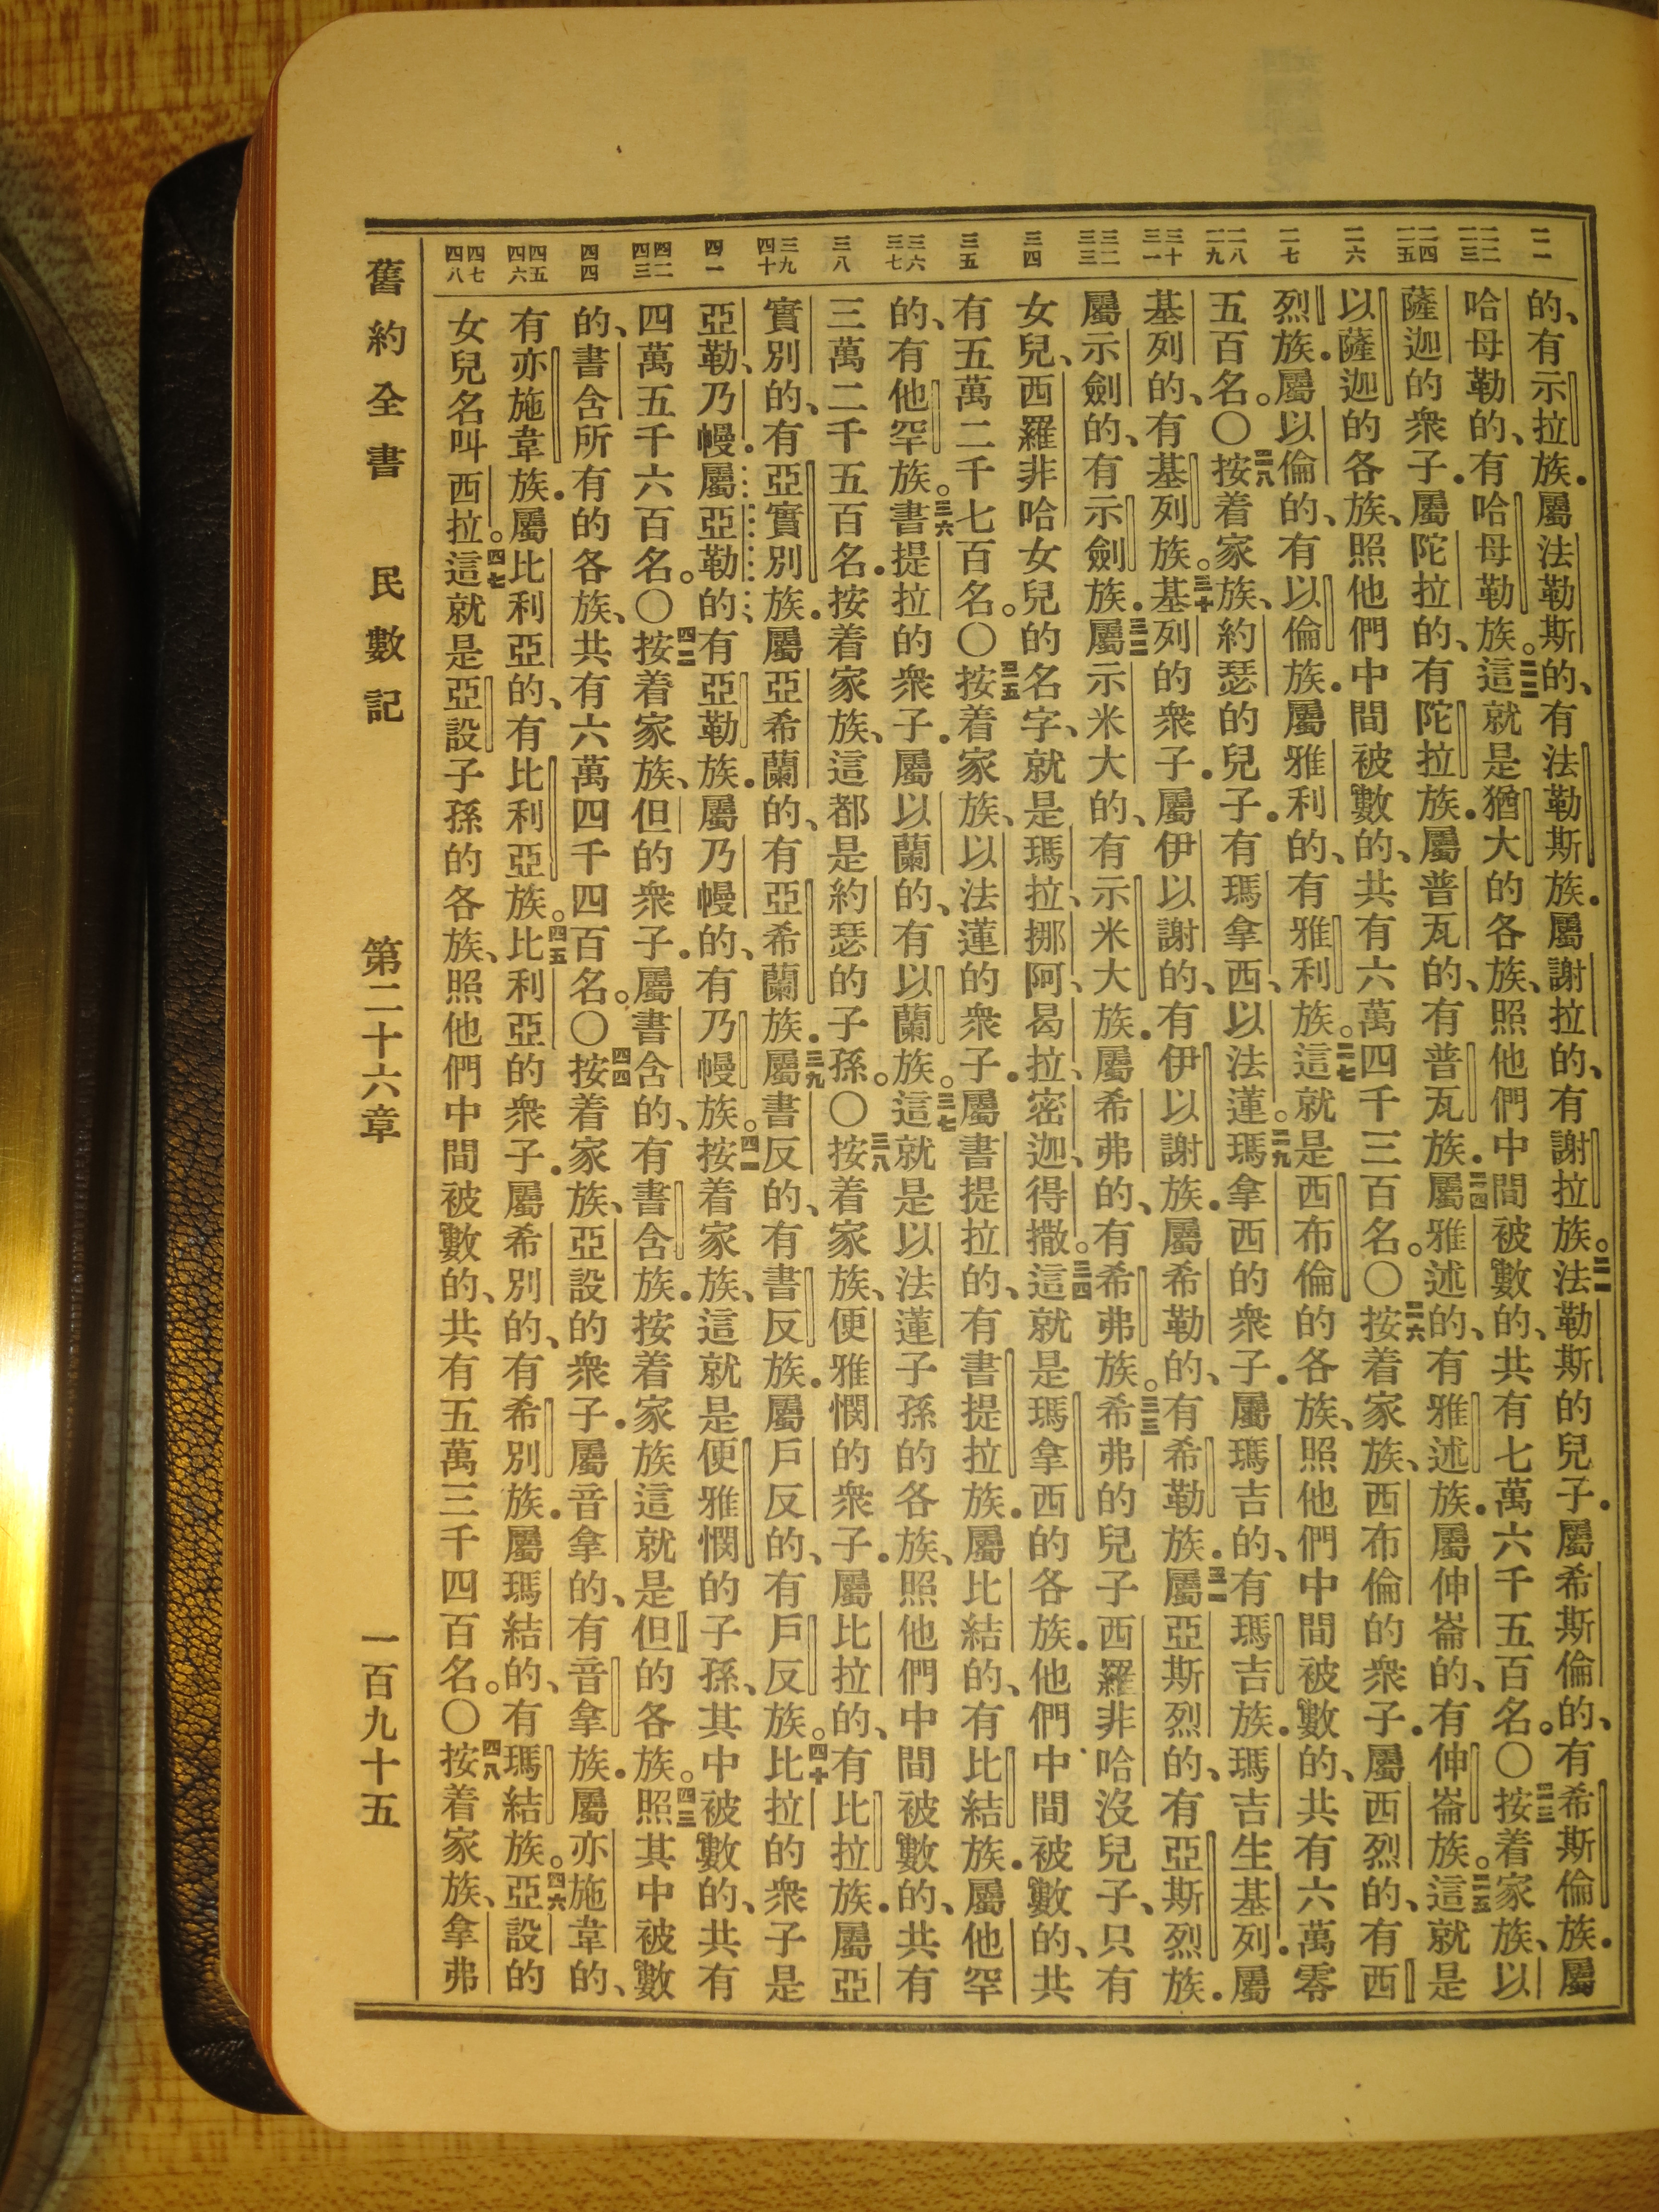 二一
二二 二三
二四 二五
二六
二七
二八 二九
三十 三一
三二 三三
三四
三五
三六 三七
三八
三九 四十
四一
四二 四三
四四
四五 四六
四七 四八
的、有示拉族．屬法勒斯的、有法勒斯族．屬謝拉的、有謝拉族。二一法勒斯的兒子．屬希斯倫的、有希斯倫族．屬
哈母勒的、有哈母勒族。二二這就是猶大的各族、照他們中間被數的、共有七萬六千五百名。〇二三按着家族、以
薩迦的衆子．屬陀拉的、有陀拉族．屬普瓦的、有普瓦族．二四屬雅述的、有雅述族．屬伸崙的、有伸崙族。二五這就是
以薩迦的各族、照他們中間被數的、共有六萬四千三百名。〇二六按着家族、西布倫的衆子．屬西烈的、有西
烈族．屬以倫的、有以倫族．屬雅利的、有雅利族。二七這就是西布倫的各族、照他們中間被數的、共有六萬零
五百名。〇二八按着家族、約瑟的兒子．有瑪拿西、以法蓮。二九瑪拿西的衆子．屬瑪吉的、有瑪吉族．瑪吉生基列．屬
基列的、有基列族。三十基列的衆子．屬伊以謝的、有伊以謝族．屬希勒的、有希勒族．三一屬亞斯烈的、有亞斯烈族．
屬示劍的、有示劍族．三二屬示米大的、有示米大族．屬希弗的、有希弗族。三三希弗的兒子西羅非哈沒兒子、只有
女兒、西羅非哈女兒的名字、就是瑪拉、挪阿、曷拉、密迦、得撒。三四這就是瑪拿西的各族．他們中間被數的、共
有五萬二千七百名。〇三五按着家族、以法蓮的衆子．屬書提拉的、有書提拉族．屬比結的、有比結族．屬他罕
的、有他罕族。三六書提拉的衆子．屬以蘭的、有以蘭族。三七這就是以法蓮子孫的各族、照他們中間被數的、共有
三萬二千五百名．按着家族、這都是約瑟的子孫。〇三八按着家族、便雅憫的衆子．屬比拉的、有比拉族．屬亞
實別的、有亞實別族．屬亞希蘭的、有亞希蘭族．三九屬書反的、有書反族．屬戶反的、有戶反族。四十比拉的衆子是
亞勒、乃幔．屬亞勒的有亞勒族．屬乃幔的、有乃幔族。四一按着家族、這就是便雅憫的子孫、其中被數的、共有
四萬五千六百名。〇四二按着家族、但的衆子．屬書含的、有書含族．按着家族這就是但的各族。四三照其中被數
的、書含所有的各族、共有六萬四千四百名。〇四四按着家族、亞設的衆子．屬音拿的、有音拿族．屬亦施韋的、
有亦施韋族．屬比利亞的、有比利亞族。四五比利亞的衆子．屬希別的、有希別族．屬瑪結的、有瑪結族。四六亞設的
女兒名叫西拉。四七這就是亞設子孫的各族、照他們中間被數的、共有五萬三千四百名。〇四八按着家族、拿弗
舊約全書 民數記 第二十六章 一百九十五